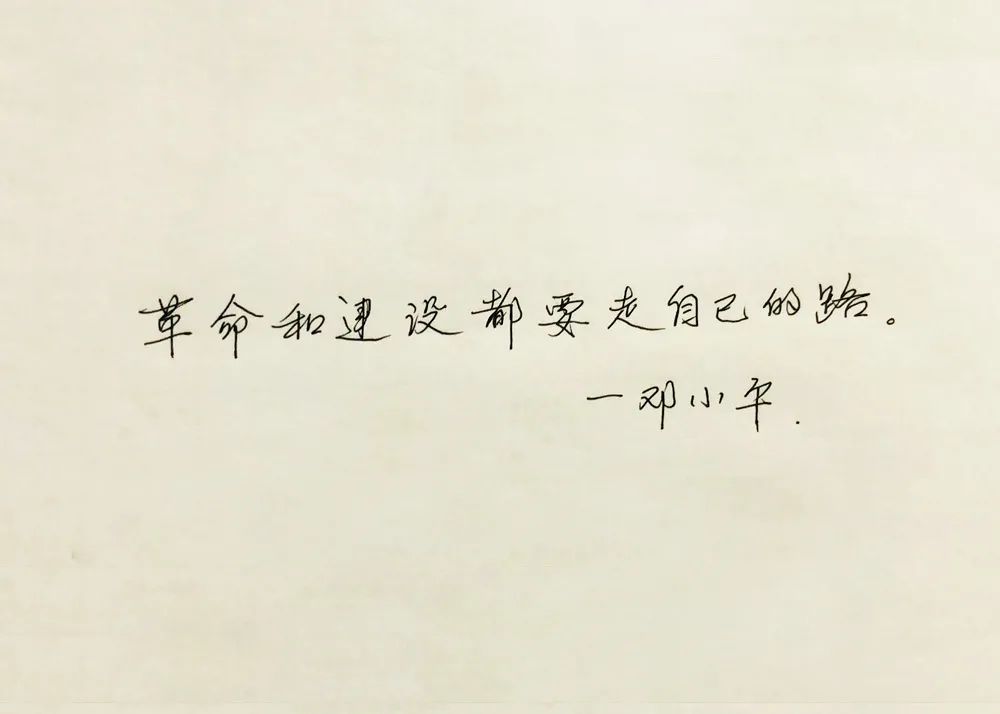 革命和建设都要走自己的路。
一邓小平.